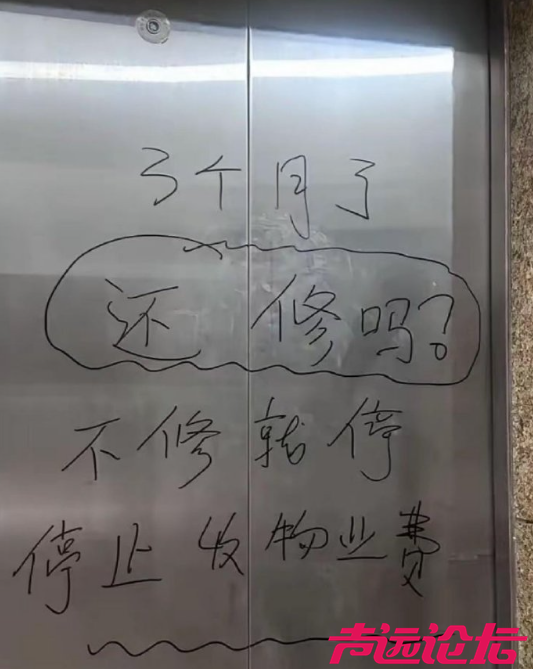 3个月了
还修吗?
不修就停
停止收物业费
声远论坛